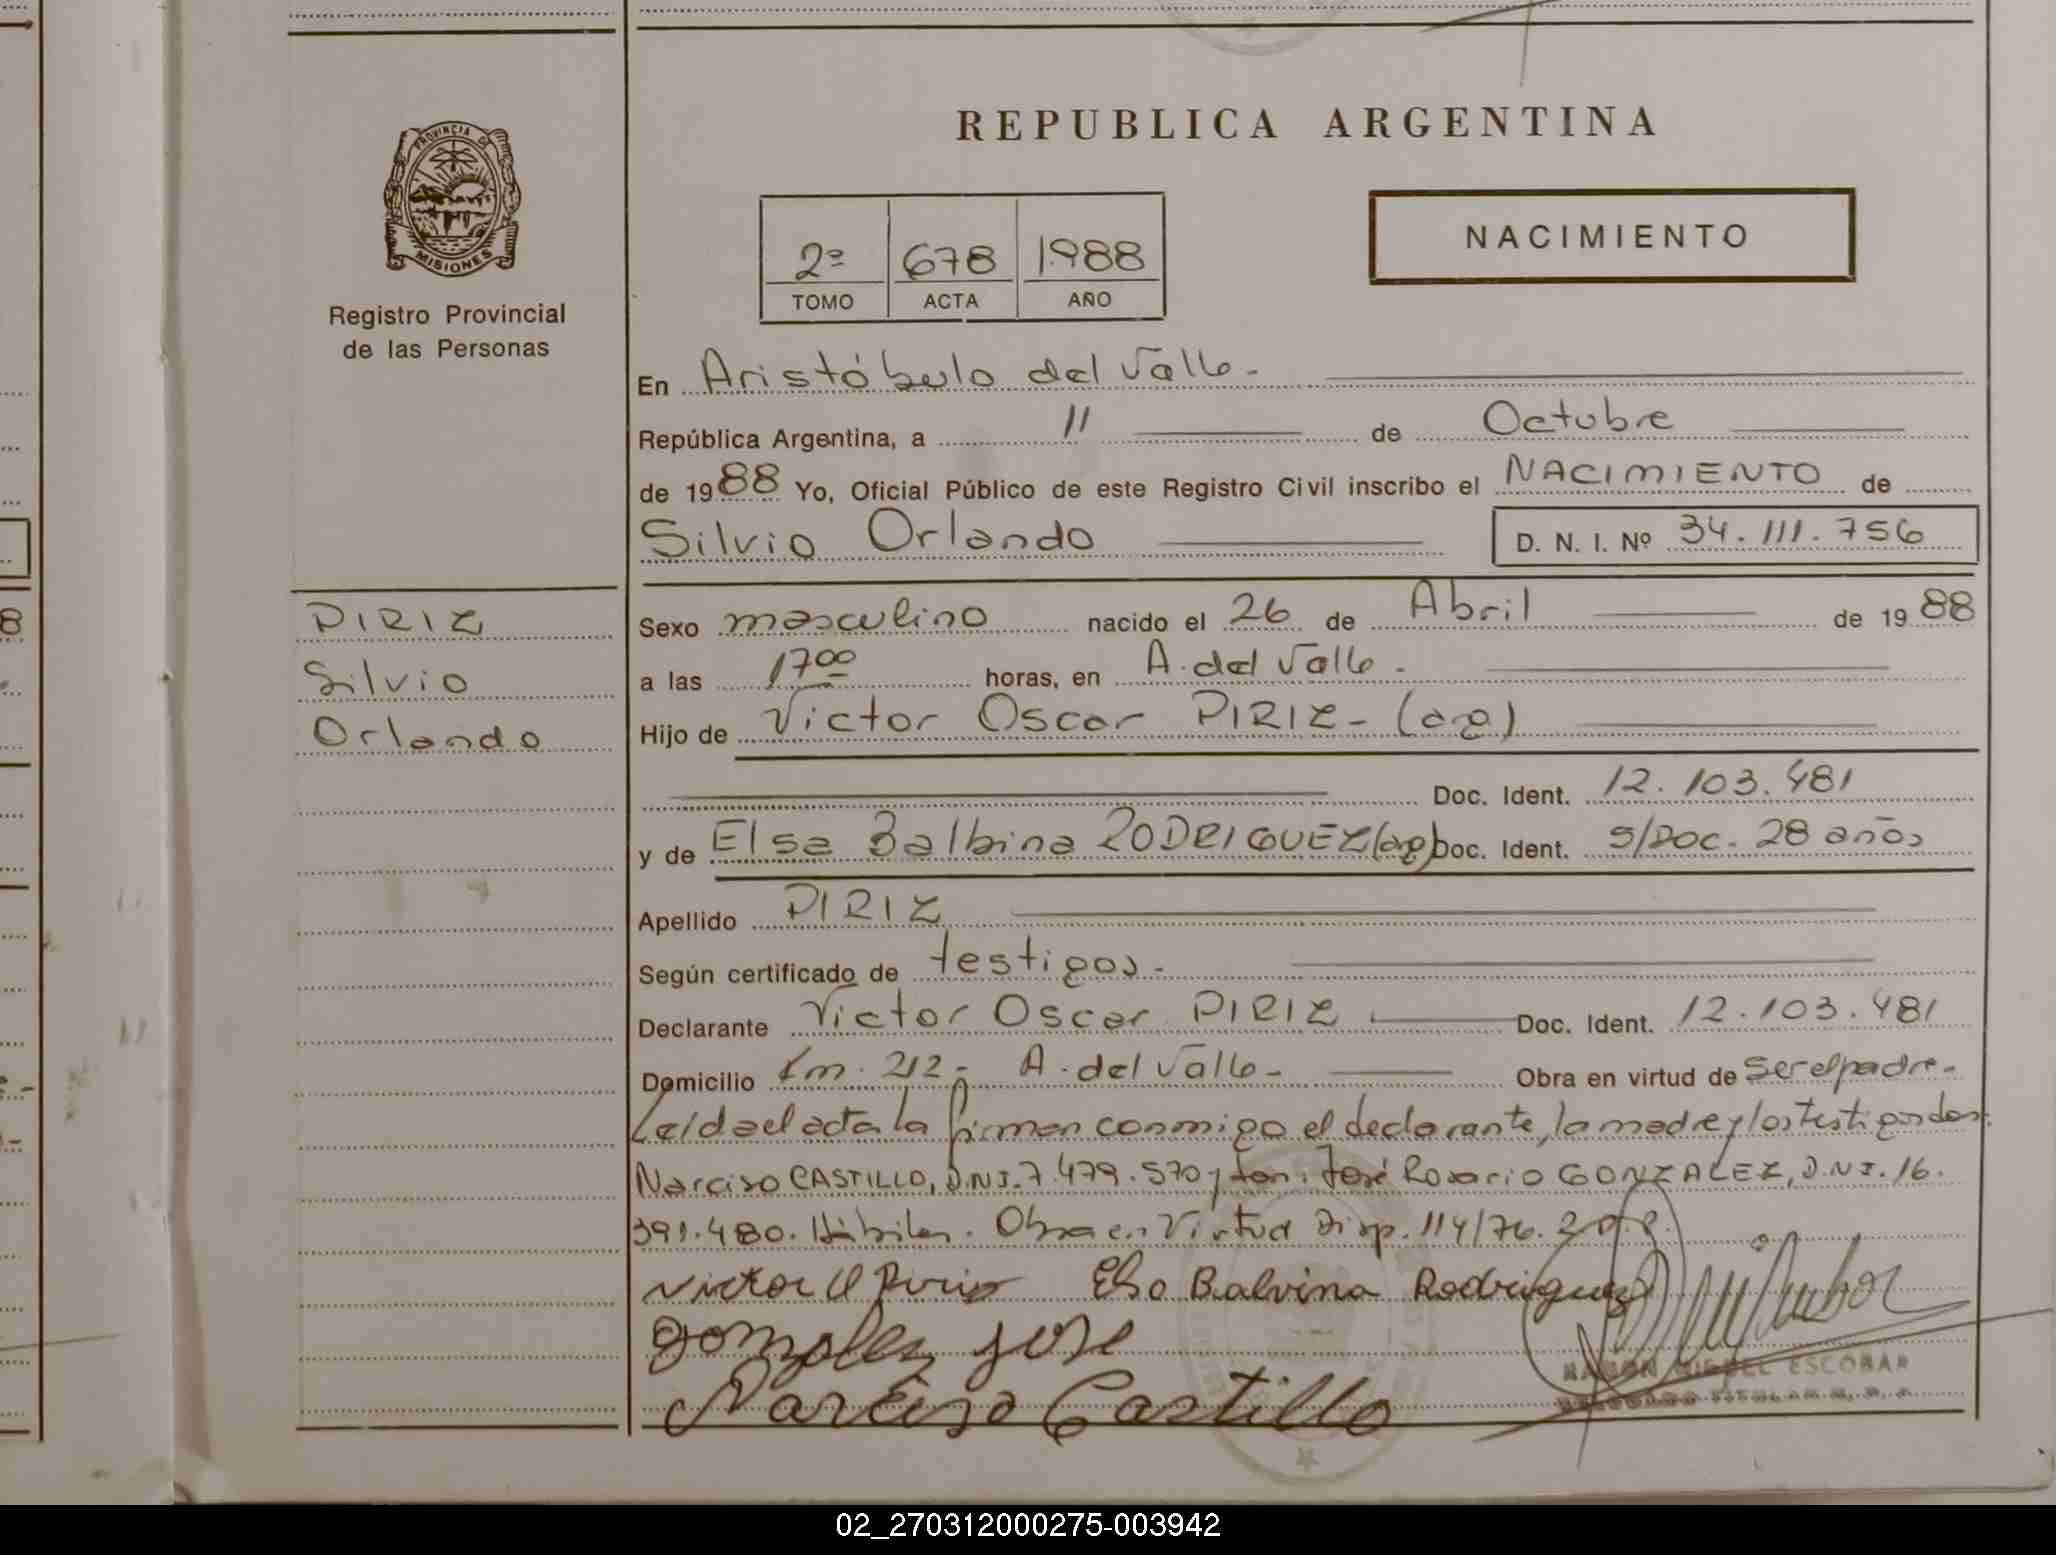 REPUBLICA ARGENTINA
PROVINCIA DE MISIONES
Registro Provincial
de las Personas
2º 678 1988
TOMO ACTA AÑO
NACIMIENTO
En Aristóbulo del Valle.
República Argentina, a 11 de Octubre
de 1988 Yo, Oficial Público de este Registro Civil inscribo el NACIMIENTO de
Silvio Orlando D. N. I. Nº 34.111.756
PIRIZ
Silvio
Orlando
Sexo masculino nacido el 26 de Abril de 1988
a las 17 00 horas, en A. del Valle.
Hijo de Victor Oscar PIRIZ - (arg)
Doc. Ident. 12.103.481
y de Elsa Balbina RODRIGUEZ (arg) Doc. Ident. S/Doc. 28 años
Apellido PIRIZ
Según certificado de testigos.
Declarante Victor Oscar PIRIZ Doc. Ident. 12.103.481
Domicilio km. 212 - A. del Valle - Obra en virtud de ser el padre.
Leída el acta la firman conmigo el declarante, la madre y los testigos don:
Narciso CASTILLO, D.N.I. 7.479.570 y don: José Rosario GONZALEZ, D.N.I. 16.
391.480. Hábiles. Obra en Virtud Disp. 114/76.
Victor O Piris Elsa Balvina Rodriguez
Gonzalez José
Narciso Castillo
RAMON MIGUEL ESCOBAR
02_270312000275-003942